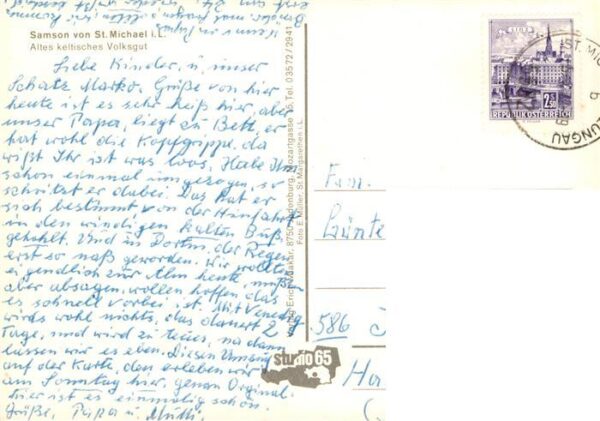 Samson von St. Michael i.L.
Altes keltisches Volksgut
Liebe Kinder, u. unser
Schatz Marko. Grüße von hier
heute ist es sehr heiß hier, aber
unser Papa, liegt zu Bett, er
hat wohl die Kopfgrippe, da
wißt Ihr ist was los. Habe ihn
schon einmal umgezogen, so
schwitzt er dabei. Das hat er
sich bestimmt von der Hinfahrt
in den windigen kalten Buß
gehohlt. Und in Dortm. der Regen
erst so naß geworden. Wir wollten
eigendlich zur Alm heute, mußten
aber absagen. wollen hoffen, das
es schnell vorbei ist. Mit Venedig
wirds wohl nichts, das dauert 2
Tage, und wird zu teuer, na dann
lassen wir es eben. Diesen Umzug
auf der Karte, den erleben wir
am Sonntag hier, genau Original.
hier ist es einmalig schön.
Grüße, Papa u. Mutti
Verlag Erich 8750 Judenburg, Mozartgasse 15, Tel. 03572/2941
Foto E. Müller, St. Margarethen i. L.
studio 65
LINZ
2.50
REPUBLIK ÖSTERREICH
ST. MIC
LUNGAU
Fam.
Günte
586